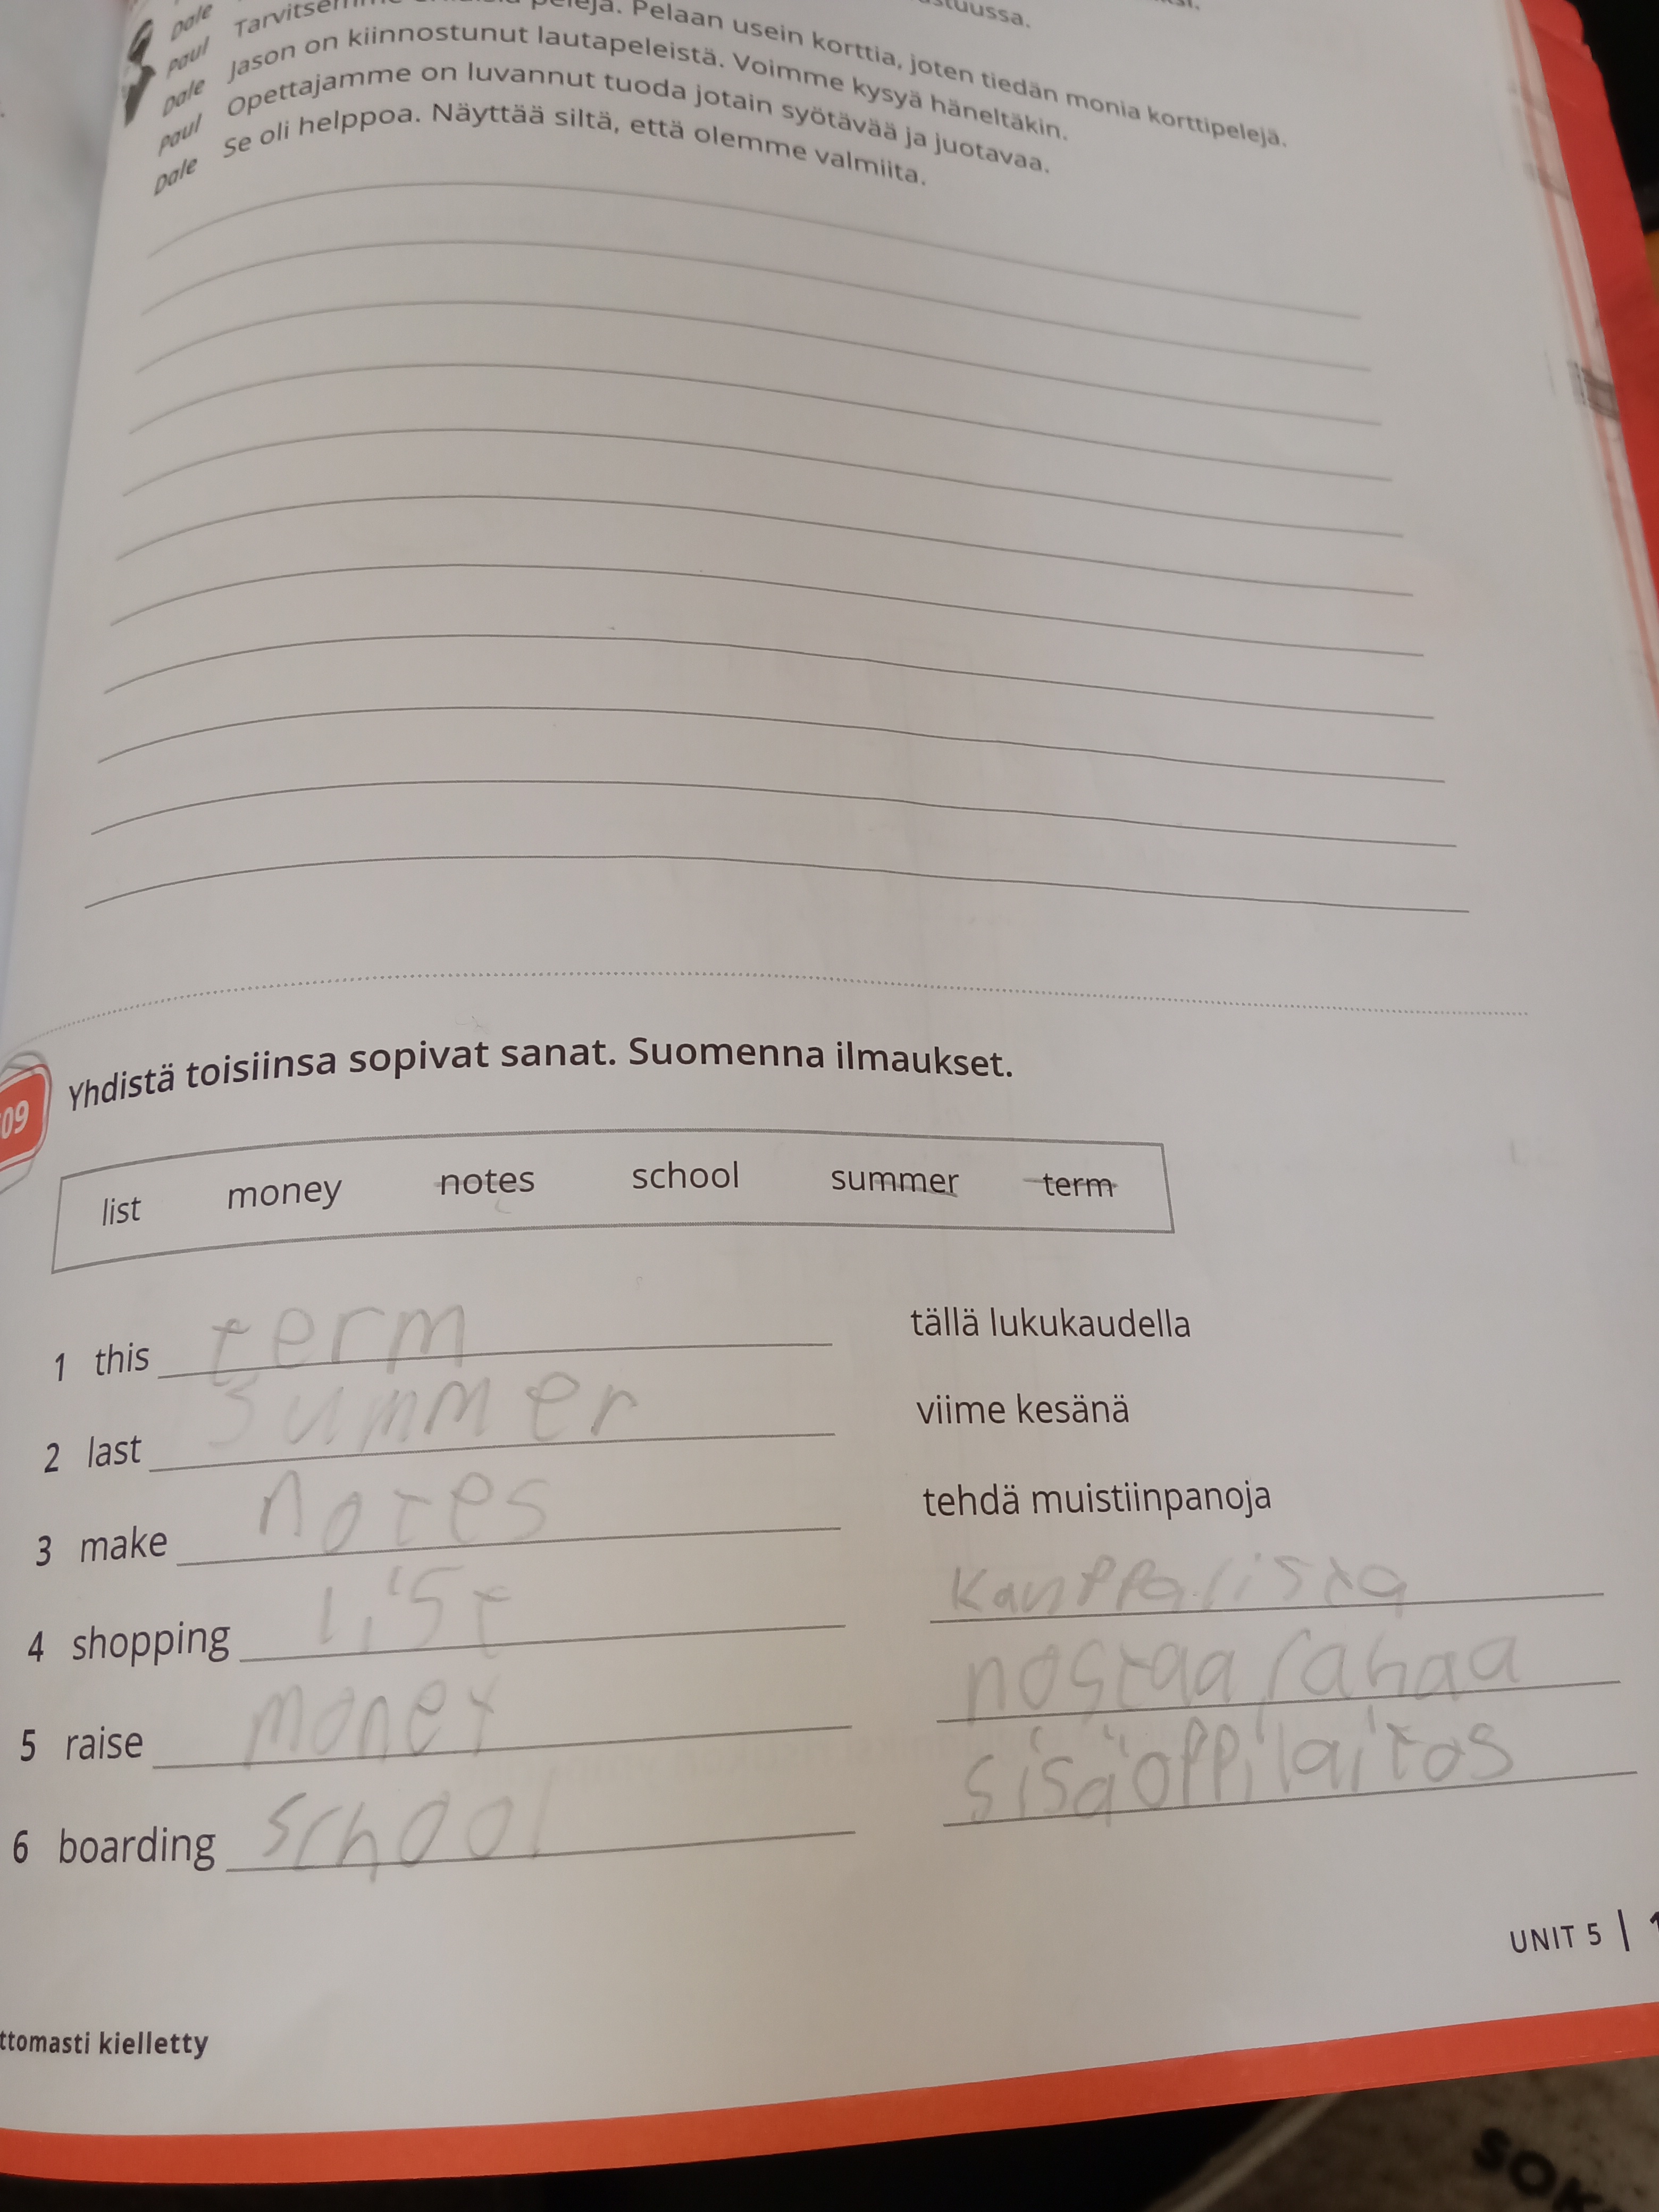 Dale
paul Tarvitsemme pelejä. Pelaan usein korttia, joten tiedän monia korttipelejä.
Dale Jason on kiinnostunut lautapeleistä. Voimme kysyä häneltäkin.
paul Opettajamme on luvannut tuoda jotain syötävää ja juotavaa.
Dale Se oli helppoa. Näyttää siltä, että olemme valmiita.
09 Yhdistä toisiinsa sopivat sanat. Suomenna ilmaukset.
list money notes school summer term
1 this term tällä lukukaudella
2 last summer viime kesänä
3 make notes tehdä muistiinpanoja
4 shopping list kauppalista
5 raise money nostaa rahaa
6 boarding school sisäoppilaitos
UNIT 5 |
ttomasti kielletty
SOK